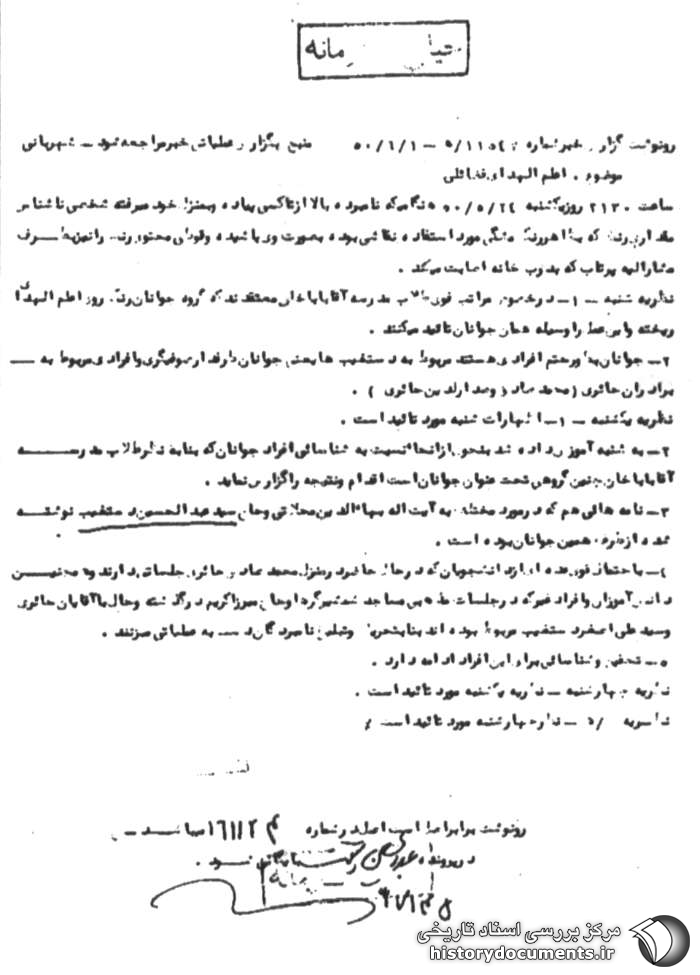 رونوشت گزارش خبر شماره ۵/۱۱۵۴ – ۵۰/۶/۱ منبع بگزارش عملیاتی خبر مراجعه شود – شهربانی
موضوع . اعلم الهدای فضائلی
ساعت ۲۱۳۰ روز یکشنبه ۵۰/۵/۲۴ هنگامیکه نامبرده بالا از تاکسی پیاده و بمنزل خود میرفته شخصی ناشناس
مقداری رنگ که بظاهر رنگ مشکی مورد استفاده نقاشی بوده بصورت وی پاشیده و قوطی محتوی رنگ را نیز بطرف
مشارالیه پرتاب که بدرب خانه اصابت میکند .
نظریه شنبه – ۱ – در خصوص مراتب فوق طلاب مدرسه آقاباباخان معتقدند که گروه جوانان رنگ روی اعلم الهدی
ریخته و این عمل را وسیله همان جوانان تائید میکنند .
۲ – جوانان بطور حتم افرادی هستند مربوط به دستغیب ها یعنی جوانان طرفدار صوفیگری و افرادی مربوط به –
برادران حائری (محمد صادق و صدرالدین حائری ) .
نظریه یکشنبه – ۱ – اظهارات شنبه مورد تائید است .
۲ – به شنبه آموزش داده شد بنحوی از انحا نسبت به شناسائی افراد جوانان که بنا به نظر طلاب مدرسه
آقاباباخان چنین گروهی تحت عنوان جوانان است اقدام و نتیجه را گزارش نماید .
۳ – نامه هائی هم که در مورد مختلف به آیت اله بهاءالدین محلاتی و حاج سید عبدالحسین دستغیب نوشته
شده از طرف همین جوانان بوده است .
۴ – باحتمال قوی عده ای از دانشجویان که در حال حاضر در منزل محمد صادق حائری جلساتی دارند و همچنین
دانش آموزان و افراد غیر که در جلسات مذهبی مساجد شمشیرگرها و حاج میرزاکریم در گذشته و حال با آقایان حائری
و سید علی اصغر دستغیب مربوط بوده اند بنا بتحریک و تبلیغ نامبردگان دست به عملیاتی میزنند .
۵ – تحقیق و شناسائی برای این افراد ادامه دارد .
نظریه چهارشنبه – نظریه یکشنبه مورد تائید است .
نظریه ۵ه – نظر چهارشنبه مورد تائید است
رونوشت برابر با اصل است اصل در شماره ۱۶۱۱۲ م میباشد –
در پرونده بایگانی شود .
مرکز بررسی اسناد تاریخی
historydocuments.ir